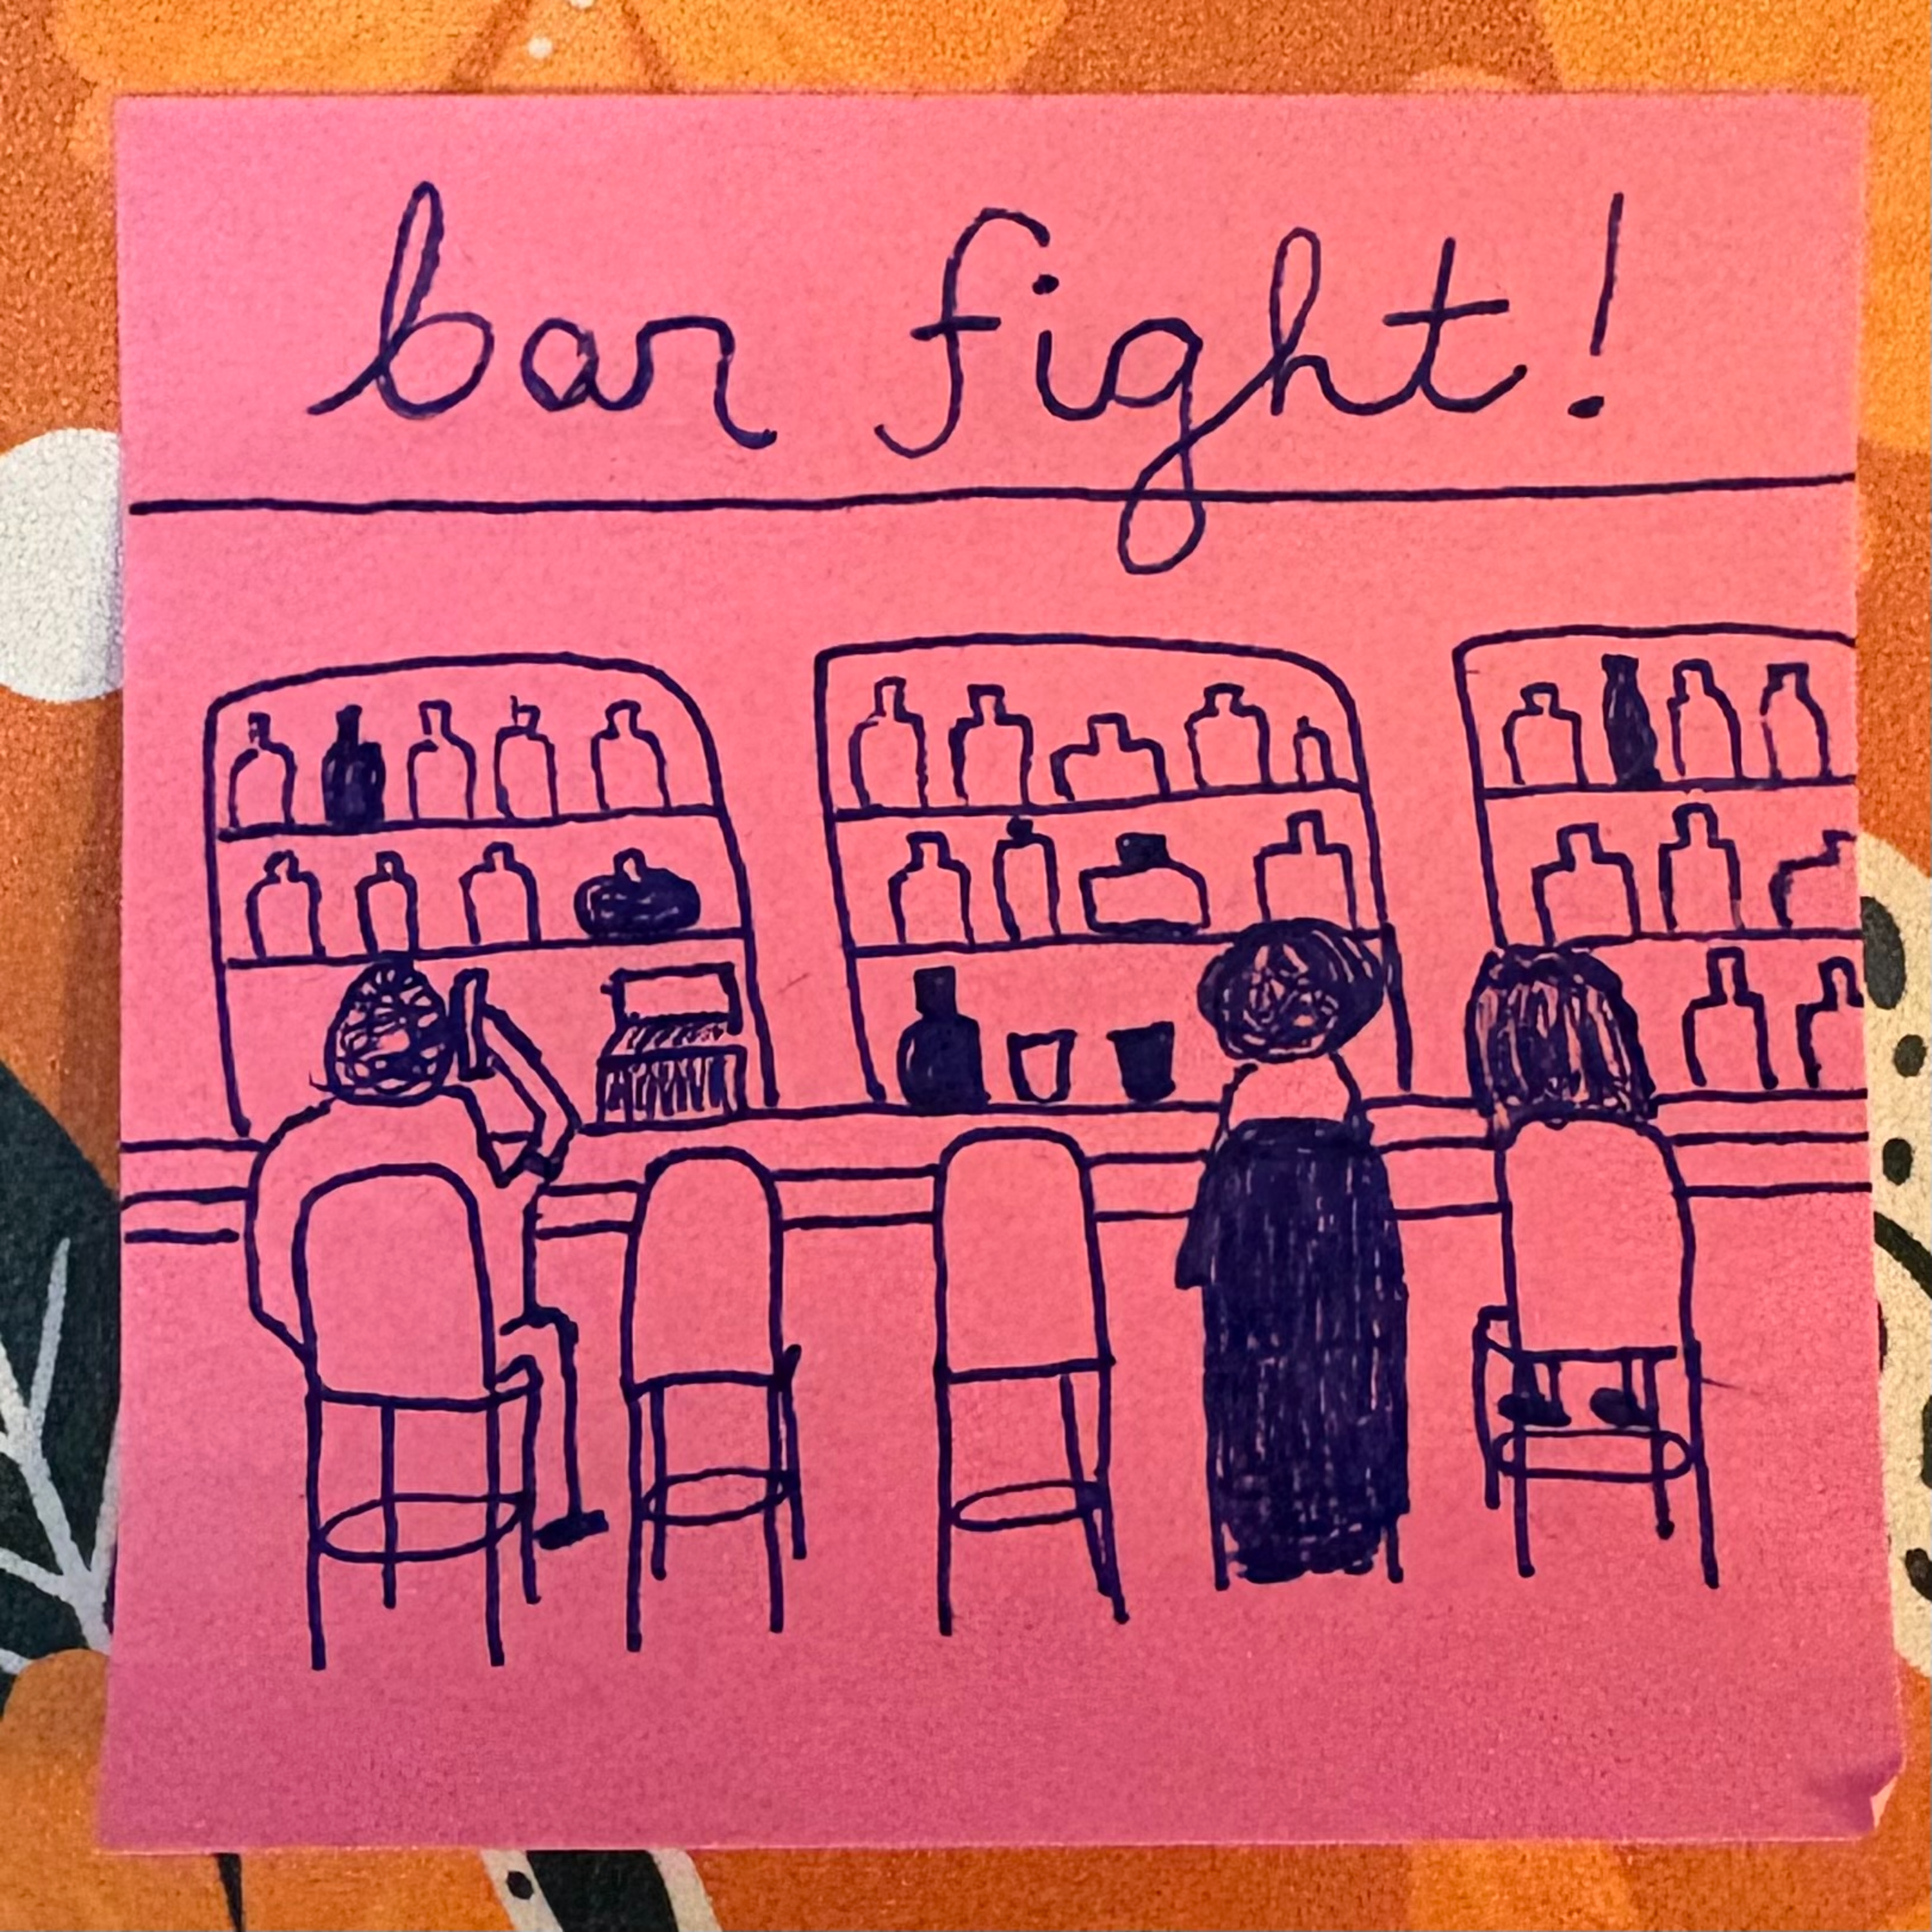 bar fight!